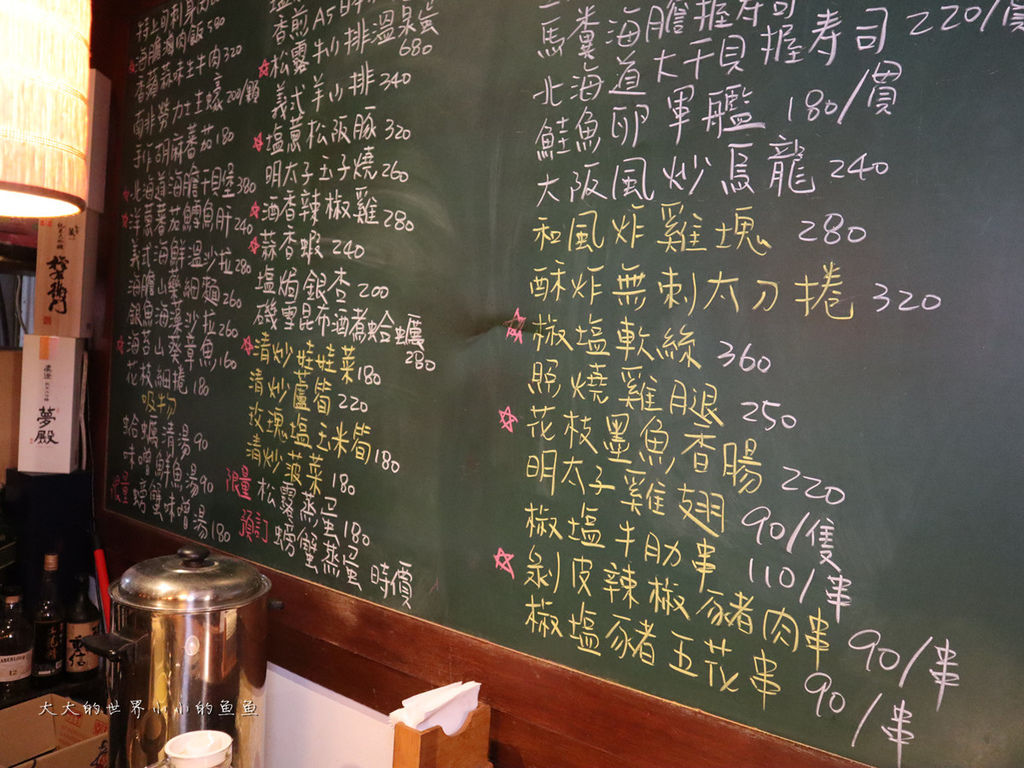 海膽滷肉飯 580
手作胡麻番茄 180
北海道海膽干貝堡 380
洋蔥蕃茄鱈魚肝 240
義式海鮮溫沙拉 280
海膽山藥細麵 260
銀魚海藻沙拉 260
海苔山葵章魚 160
花枝細捲 180
吸物
蛤蠣清湯 90
味噌鮮魚湯 90
限量 螃蟹味噌湯 180
松露牛小排溫泉蛋
680
義式羊小排 340
塩蔥松阪豚 320
明太子玉子燒 260
酒香辣椒雞 280
蒜香蝦 240
塩焗銀杏 200
磯雪昆布酒煮蛤蠣
280
清炒娃娃菜 180
清炒蘆筍 220
玫瑰塩玉米筍 180
清炒菠菜 180
限量 松露蒸蛋 180
預訂 螃蟹蒸蛋 時價
馬糞海膽握壽司 220/貫
北海道大干貝握壽司
鮭魚卵軍艦 180/貫
大阪風炒烏龍 240
和風炸雞塊 280
酥炸無刺太刀捲 320
椒塩軟絲 360
照燒雞腿 250
花枝墨魚香腸 220
明太子雞翅 90/隻
椒塩牛肋串 110/串
剝皮辣椒豬肉串 90/串
椒塩豬五花串 90/串
夢殿
大大的世界小小的鱼鱼